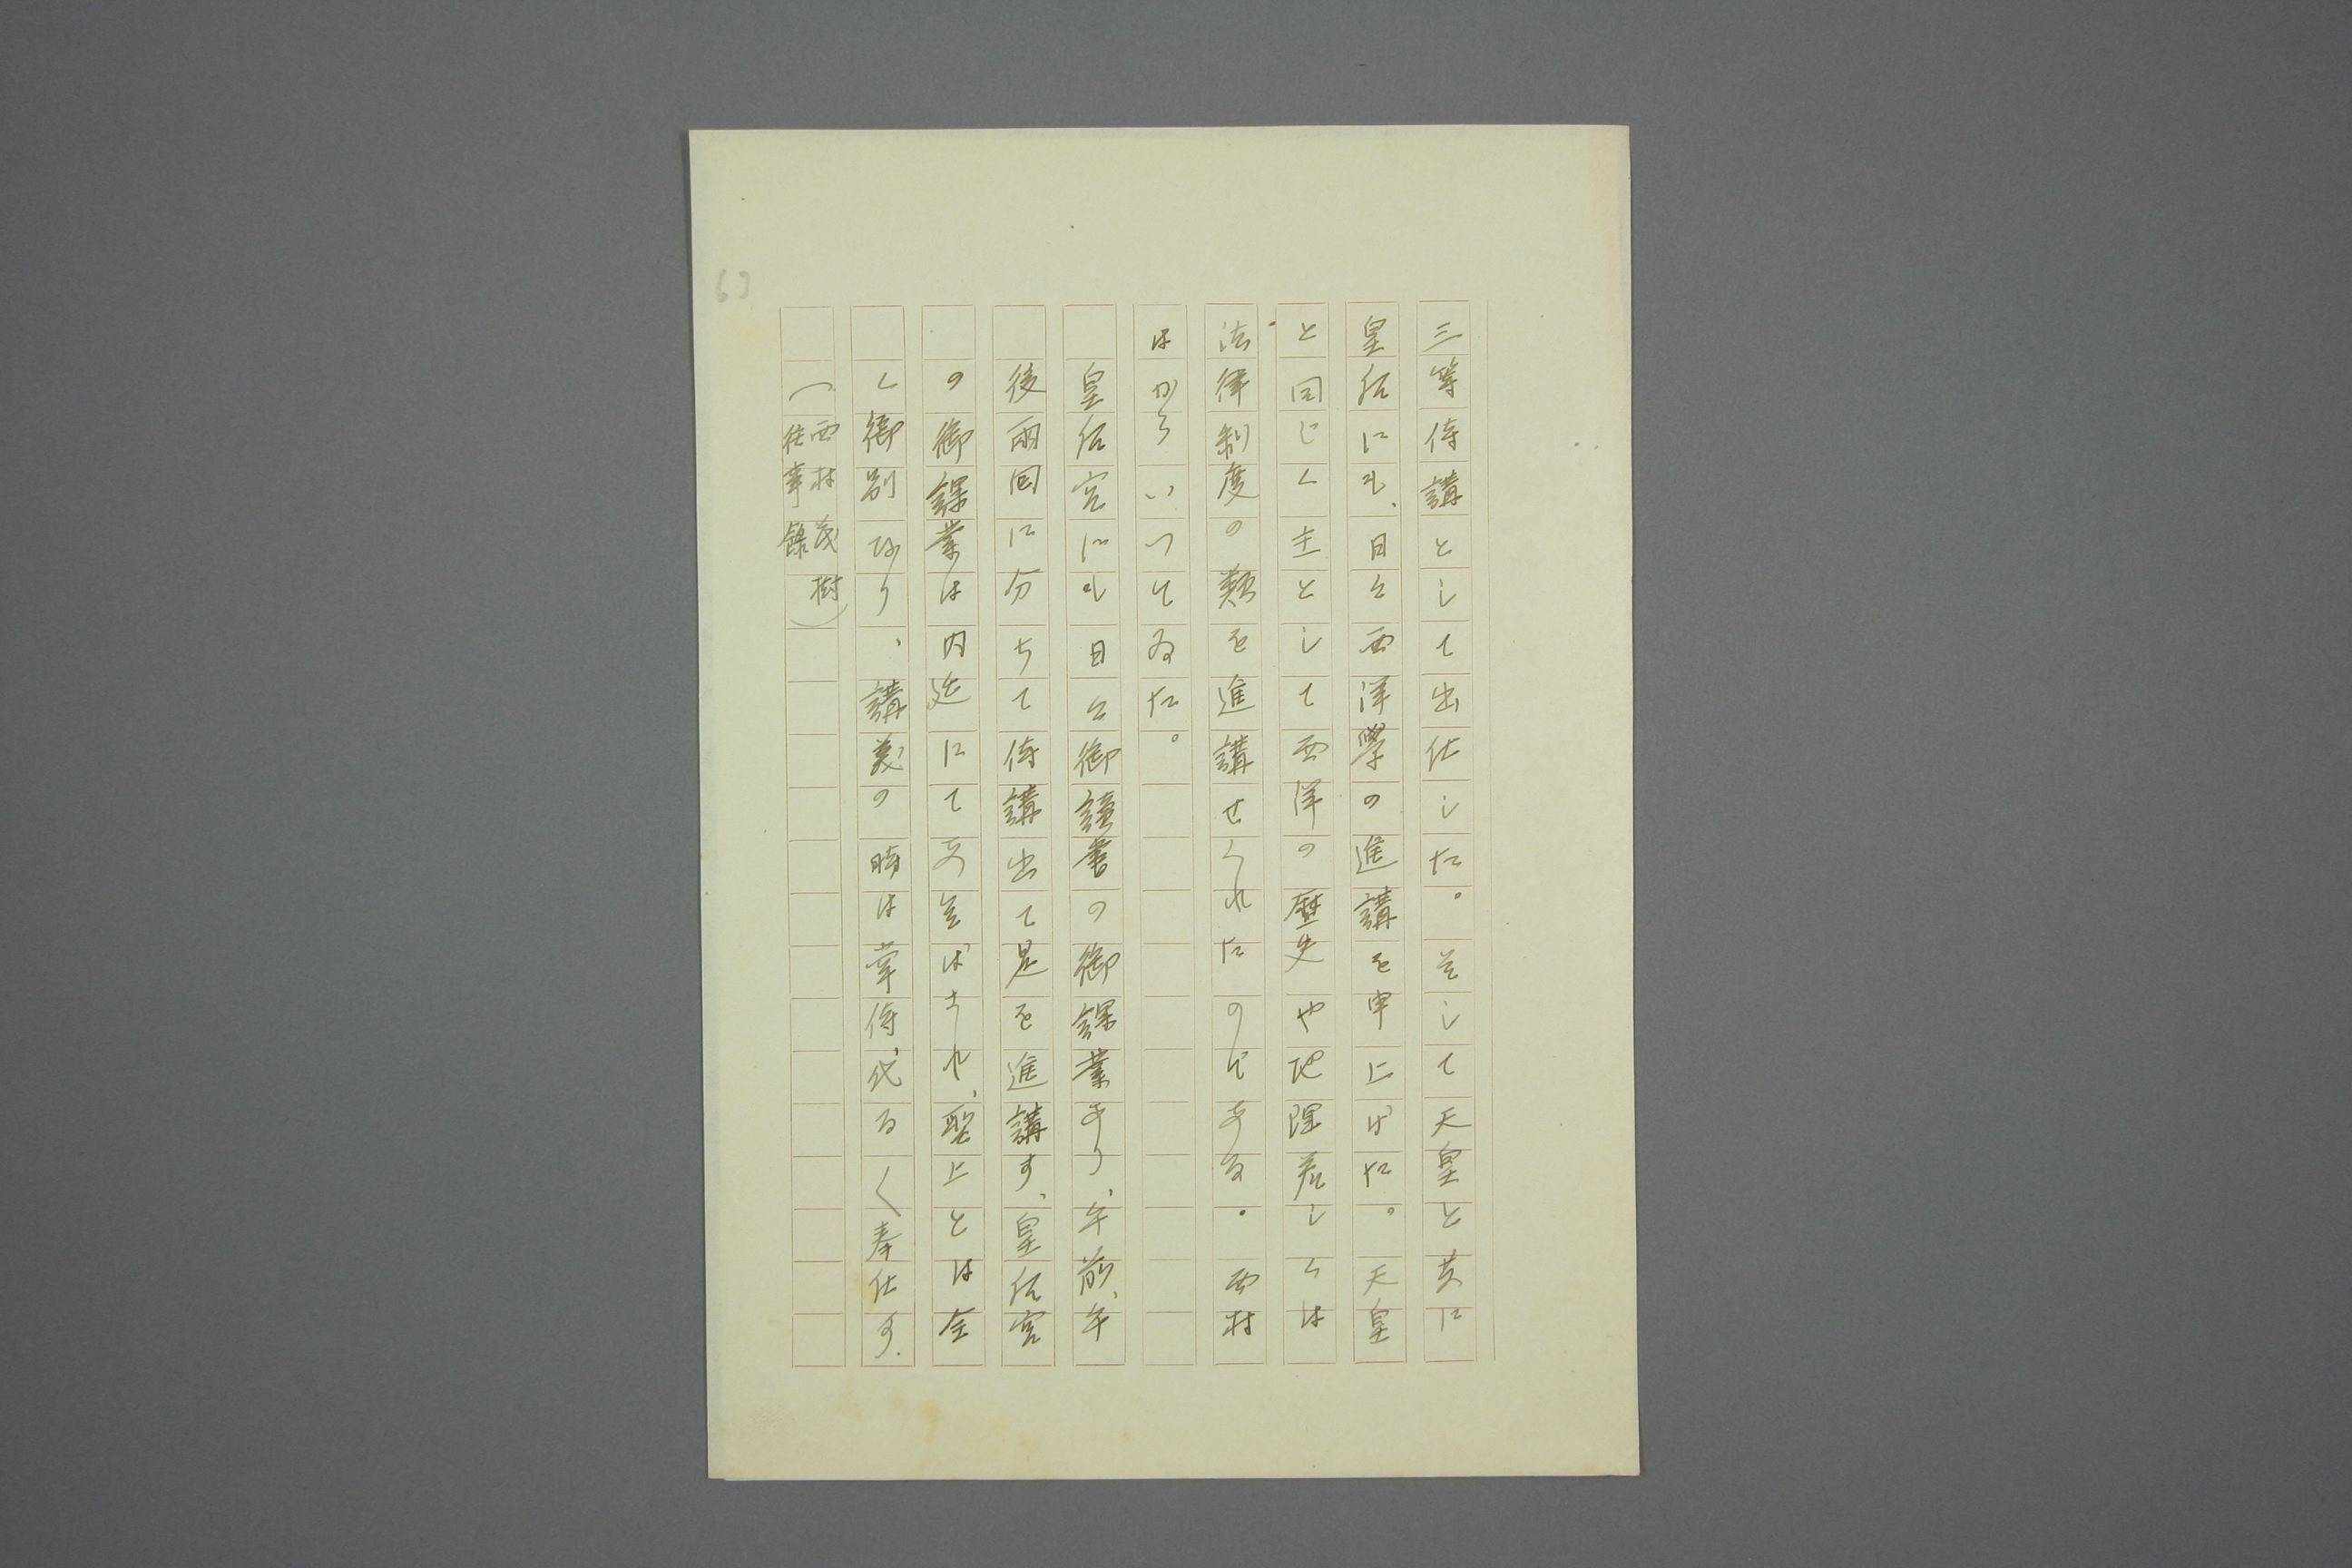 三等侍講として出仕した。そして天皇と共に
皇后にも、日々西洋學の進講を申上げた。天皇
と同じく主として西洋の歴史や地理若しくは
法律制度の類を進講せられたのである。西村
はかういつてゐた。
皇后宮にも日々御讀書の御課業あり、午前、午
後兩囘に分ちて侍講出て是を進講す、皇后宮
の御課業は内廷にてあそばされ、聖上とは全
く御別なり、講義の時は掌侍、代る〱奉仕す.
（西村茂樹）
往事錄
63